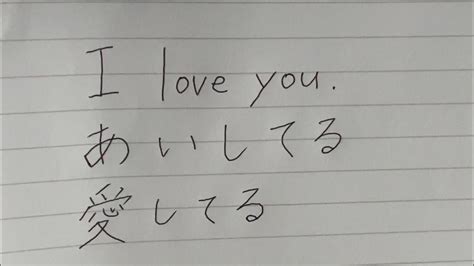 I love you.
あいしてる
愛してる